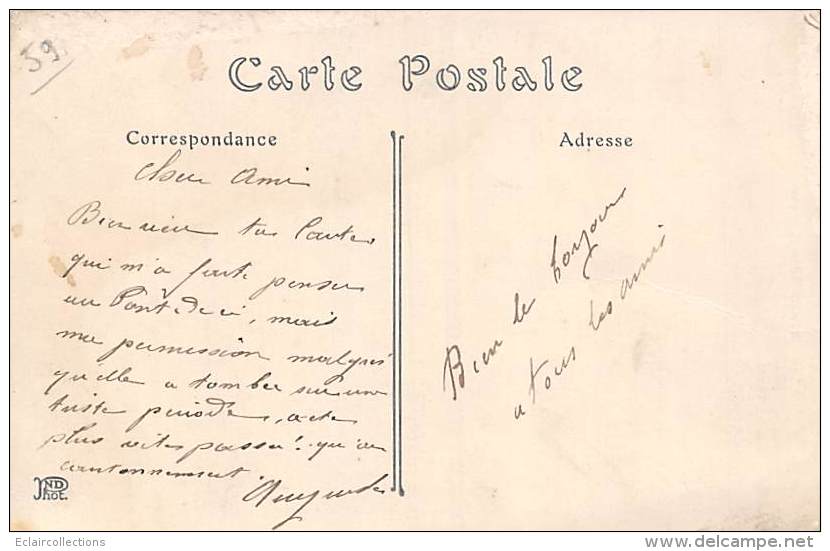 59
Carte Postale
Correspondance
Adresse
cher Ami
Bien reçu ta Carte
qui m'a faite penser
au Pont de cé, mais
ma permission malgrés
qu'elle a tombée sur une
triste période, a étée
plus vites passée! qu'au
cantonnement
Bien le bonjour
a tous les amis
ND
Phot.
Eclaircollections
www.delcampe.net